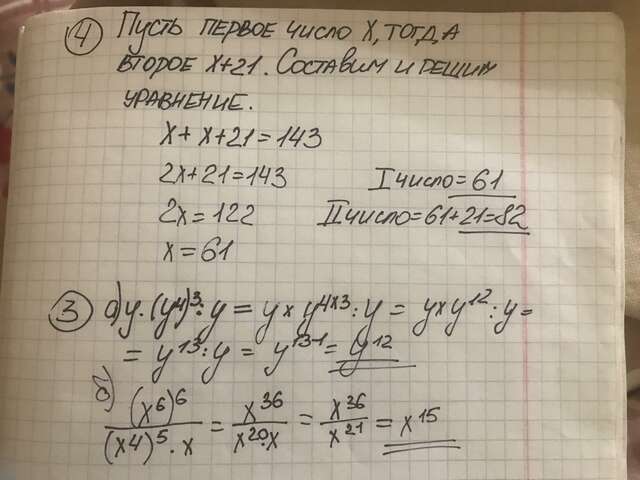 ④ Пусть первое число x, тогда
второе x+21. Составим и решим
уравнение.
x + x + 21 = 143
2x + 21 = 143
I число = 61
2x = 122
II число = 61 + 21 = 82
x = 61
③ а) y · (y⁴)³ : y = y × y⁴ˣ³ : y = y × y¹² : y =
= y¹³ : y = y¹³⁻¹ = y¹²
б) (x⁶)⁶ / (x4)⁵ · x = x³⁶ / x²⁰ · x = x³⁶ / x²¹ = x¹⁵